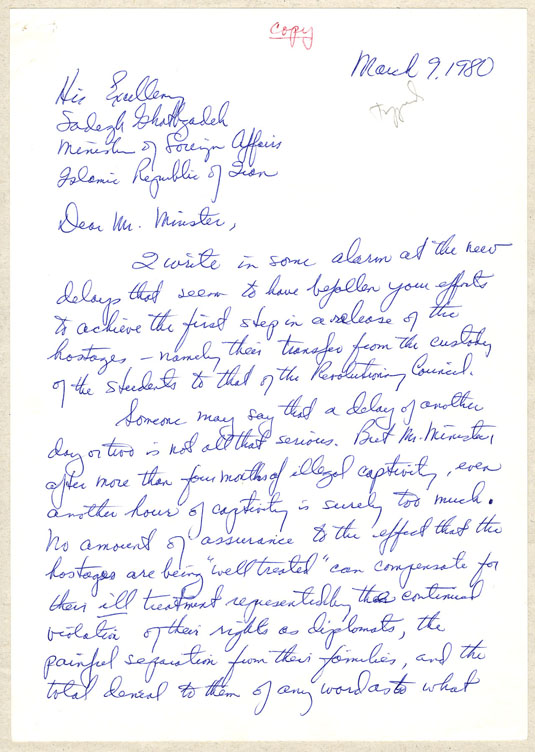 copy
March 9, 1980
typed
His Excellency
Sadegh Ghotbzadeh
Minister of Foreign Affairs
Islamic Republic of Iran
Dear Mr. Minister,
I write in some alarm at the new
delays that seem to have befallen your efforts
to achieve the first step in a release of the
hostages – namely their transfer from the custody
of the students to that of the Revolutionary Council.
Someone may say that a delay of another
day or two is not all that serious. But Mr. Minister,
after more than four months of illegal captivity, even
another hour of captivity is surely too much.
No amount of assurance to the effect that the
hostages are being "well treated" can compensate for
their ill treatment represented by the continual
violation of their rights as diplomats, the
painful separation from their families, and the
total denial to them of any word as to what